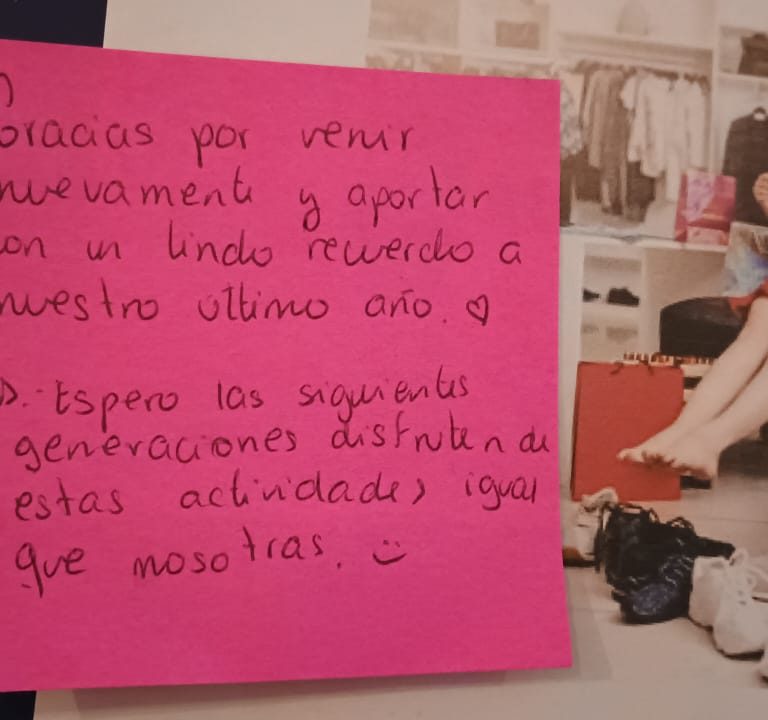 oracias por venir
nuevamente y aportar
on un lindo recuerdo a
nuestro último año. ♡
D.- Espero las siguientes
generaciones disfruten de
estas actividades igual
que nosotras. :)